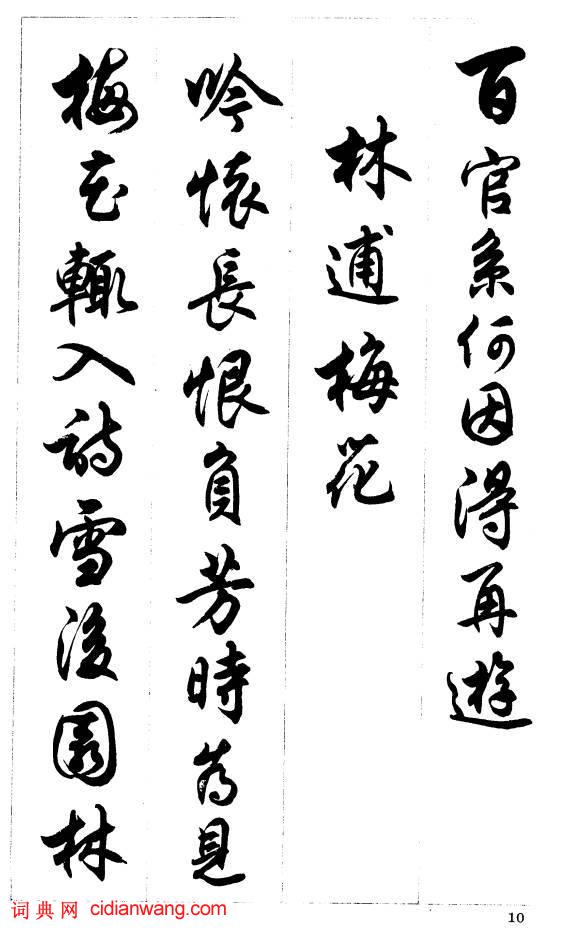 百官系何因得再遊
林逋梅花
吟懷長恨負芳時為見
梅花輒入詩雪後園林
词典网 cidianwang.com
10